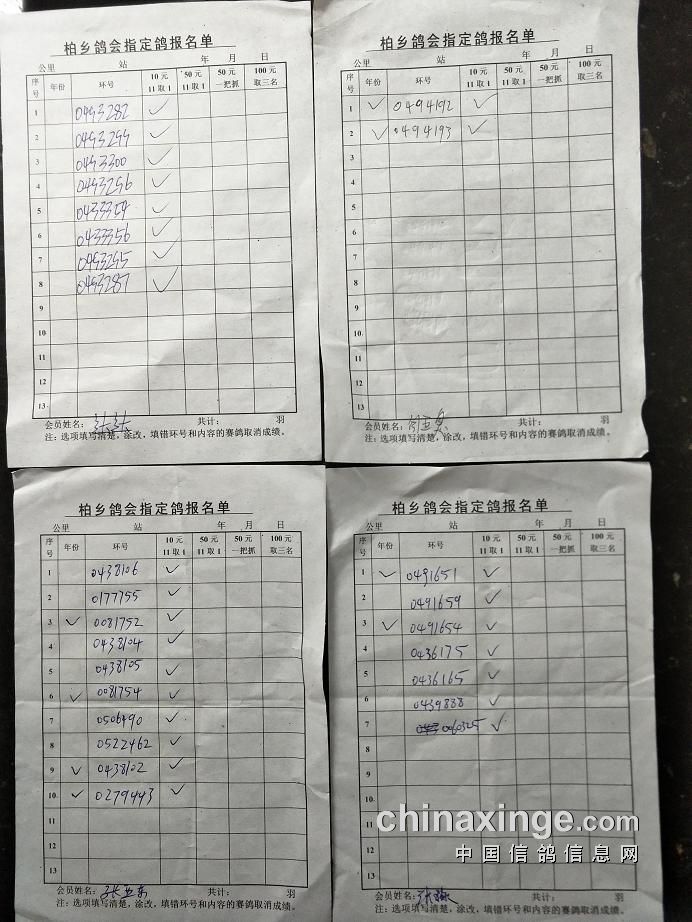 柏乡鸽会指定鸽报名单
公里 站 年 月 日
序号 年份 环号 10元 11取1 50元 11取1 50元 一把抓 100元 取三名
1 0493282 ✓
2 ✓
3 0493300 ✓
4 0493296 ✓
5 ✓
6 0433356 ✓
7 0493295 ✓
8 0493287 ✓
9
10
11
12
13
会员姓名： 共计： 羽
注：选项填写清楚，涂改，填错环号和内容的赛鸽取消成绩。
柏乡鸽会指定鸽报名单
公里 站 年 月 日
序号 年份 环号 10元 11取1 50元 11取1 50元 一把抓 100元 取三名
1 ✓ 0494192 ✓
2 ✓ 0494193 ✓
3
4
5
6
7
8
9
10
11
12
13
会员姓名： 共计： 羽
注：选项填写清楚，涂改，填错环号和内容的赛鸽取消成绩。
柏乡鸽会指定鸽报名单
公里 站 年 月 日
序号 年份 环号 10元 11取1 50元 11取1 50元 一把抓 100元 取三名
1 0438106 ✓
2 0177755 ✓
3 ✓ 0081752 ✓
4 0438104 ✓
5 0438105 ✓
6 ✓ 0081754 ✓
7 0506490 ✓
8 0522462 ✓
9 ✓ 0438102 ✓
10 ✓ 0279443 ✓
11
12
13
会员姓名：张亚东 共计： 羽
注：选项填写清楚，涂改，填错环号和内容的赛鸽取消成绩。
柏乡鸽会指定鸽报名单
公里 站 年 月 日
序号 年份 环号 10元 11取1 50元 11取1 50元 一把抓 100元 取三名
1 ✓ 0491651 ✓
2 0491659 ✓
3 ✓ 0491654 ✓
4 0436175 ✓
5 0436165 ✓
6 0439888 ✓
7 0060325 ✓
8
9
10
11
12
13
会员姓名：张 共计： 羽
注：选项填写清楚，涂改，填错环号和内容的赛鸽取消成绩。
chinaxinge.com
中国信鸽信息网